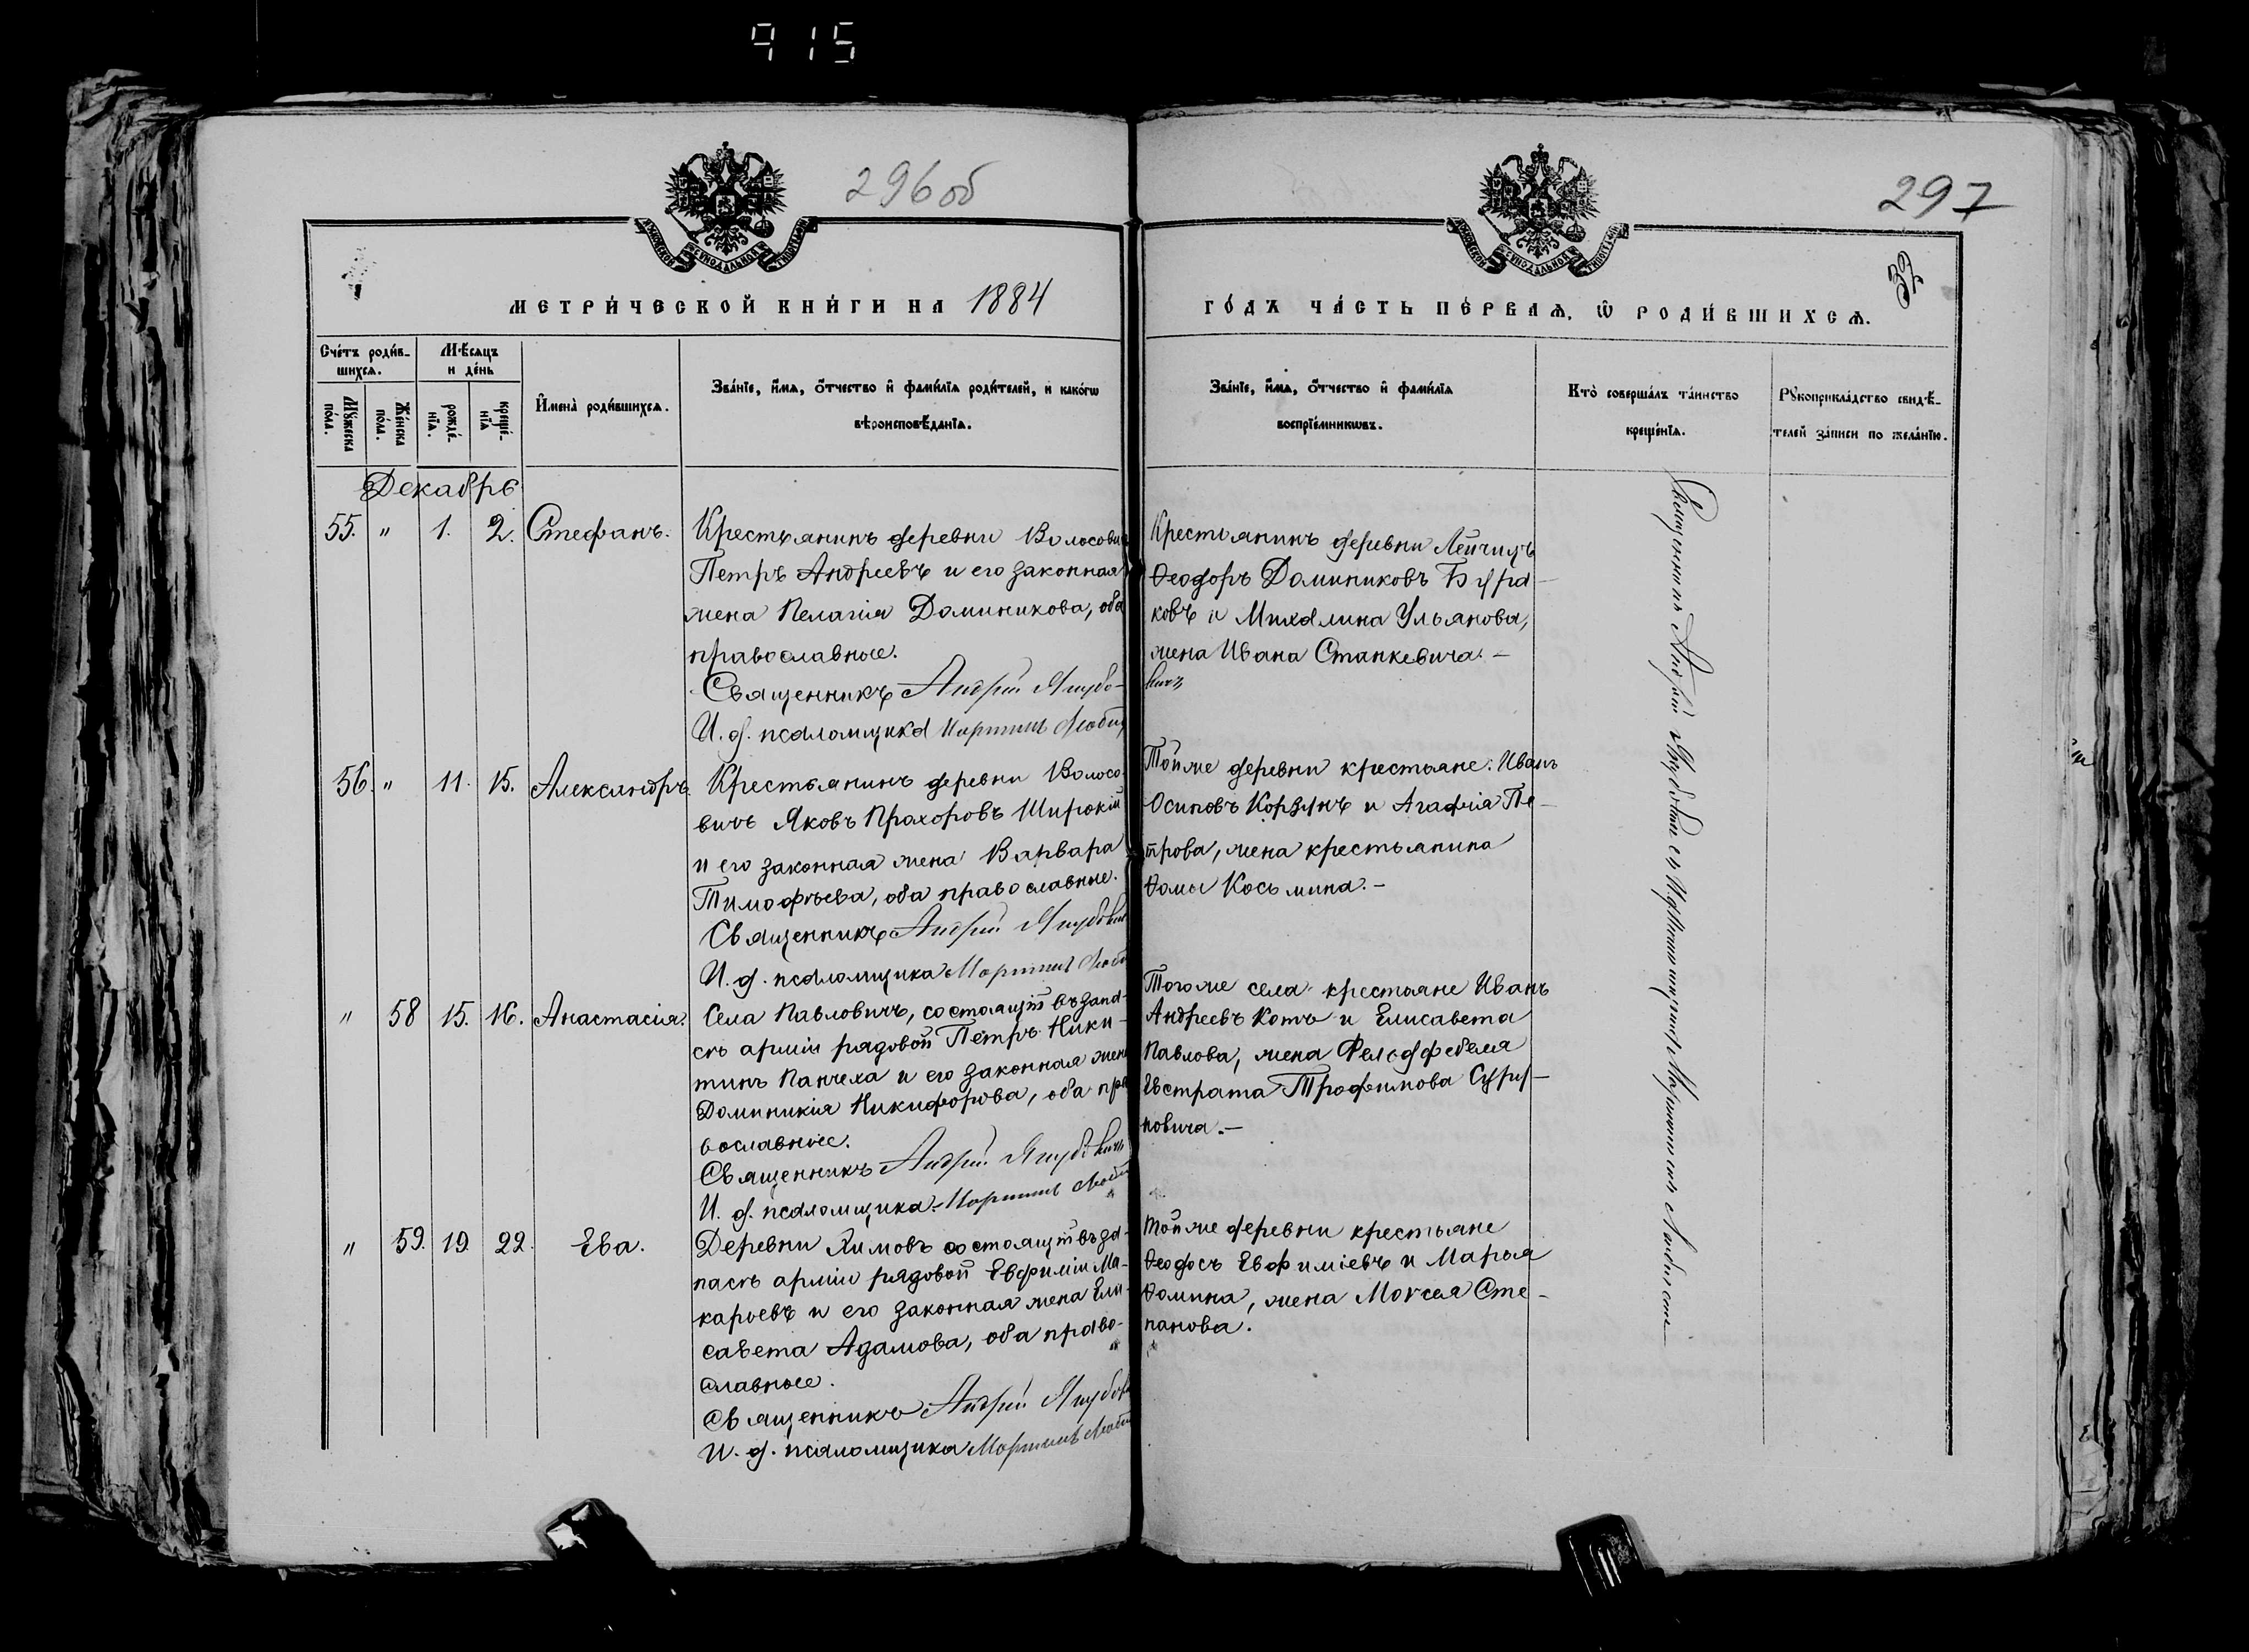 915
296 об
297
32
МЕТРИ́ЧЕСКОЙ КНИ́ГИ НА 1884
ГО́ДЪ ЧА́СТЬ ПЕ́РВАѦ, Ѡ РОДИ́ВШИХСѦ.
Сче́тъ роди́в-
шихсѧ.
Мѣ́сѧцъ
и де́нь
Мꙋ́жеска
по́ла.
Же́нска
по́ла.
рожде́-
нїѧ.
креще́-
нїѧ
И҆мена̀ роди́вшихсѧ.
Зва́нїе, и҆́мѧ, ѻ҆́тчество и҆ фами́лїѧ роди́телей, и како́гѡ
вѣроисповѣ́данїѧ.
Зва́нїе, и҆́мѧ, ѻ҆́тчество и҆ фами́лїѧ
воспрїе́мникѡвъ.
Кто̀ соверша́лъ та́инство
креще́нїѧ.
Рꙋкоприкла́дство свидѣ́-
телей за́писи по жела́нїю.
Декабрь
55. " 1. 2. Стефанъ.
Крестьянинъ деревни Волосовичъ
Петръ Андреевъ и его законная
жена Пелагія Доминикова, оба
православные.
Священникъ Андрей Якубо-
И. д. псаломщика Мартинъ
Крестьянинъ деревни
Ѳеодоръ Доминиковъ Бура-
ковъ и Михалина Ульянова,
жена Ивана Станкевича. –
вичъ
56. " 11. 15. Александръ.
Крестьянинъ деревни Волосо-
вичъ Яковъ Прахоровъ Широкій
и его законная жена Варвара
Тимофѣева, оба православные.
Священникъ Андрей Якубович
И. д. псаломщика Мартинъ
Тойже деревни крестьяне: Иванъ
Осиповъ Корзунъ и Агафія Пе-
трова, жена крестьянина
Ѳомы Косьмина. –
" 58 15. 16. Анастасія.
Села Павловичъ, состоящій въ запа-
сѣ арміи рядовой Петръ Ники-
тинъ Панчеха и его законная жена
Доминикія Никифорова, оба пра-
вославные.
Священникъ Андрей Якубовичъ
И. д. псаломщика Мартинъ
Тогоже села крестьяне Иванъ
Андреевъ Котъ и Елисавета
Павлова, жена Фельдфебеля
Евстрата Трофимова Суру-
новича. –
" 59. 19. 22. Ева.
Деревни Химовъ состоящій въ за-
пасѣ арміи рядовой Евфимій Ма-
карьевъ и его законная жена Ели-
савета Адамова, оба право-
славные.
Священникъ Андрей Якубов
И. д. псаломщика Мартинъ
Тойже деревни крестьяне
Ѳеодосъ Евфиміевъ и Марья
Ѳомина, жена Моѵсея Сте-
панова.
Священникъ Андрей Якубовичъ съ псаломщикомъ Мартиномъ